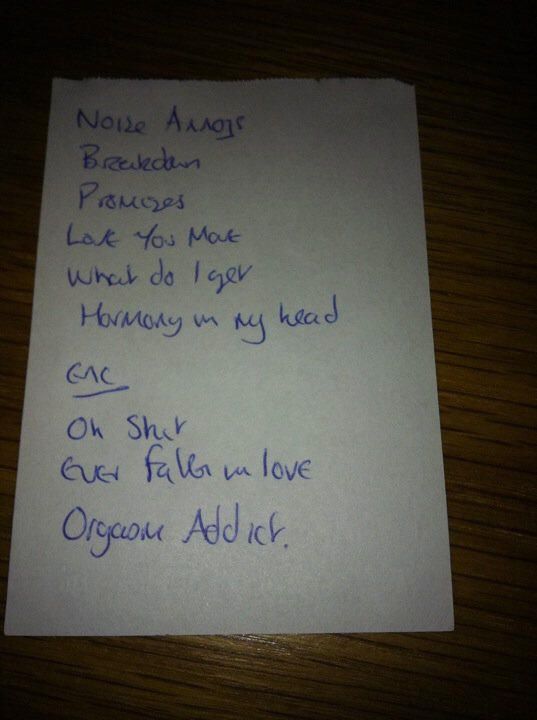 Noise Annoys
Breakdown
Promises
Love You More
What do I get
Harmony in my head
Enc
Oh Shit
Ever fallen in love
Orgasm Addict.